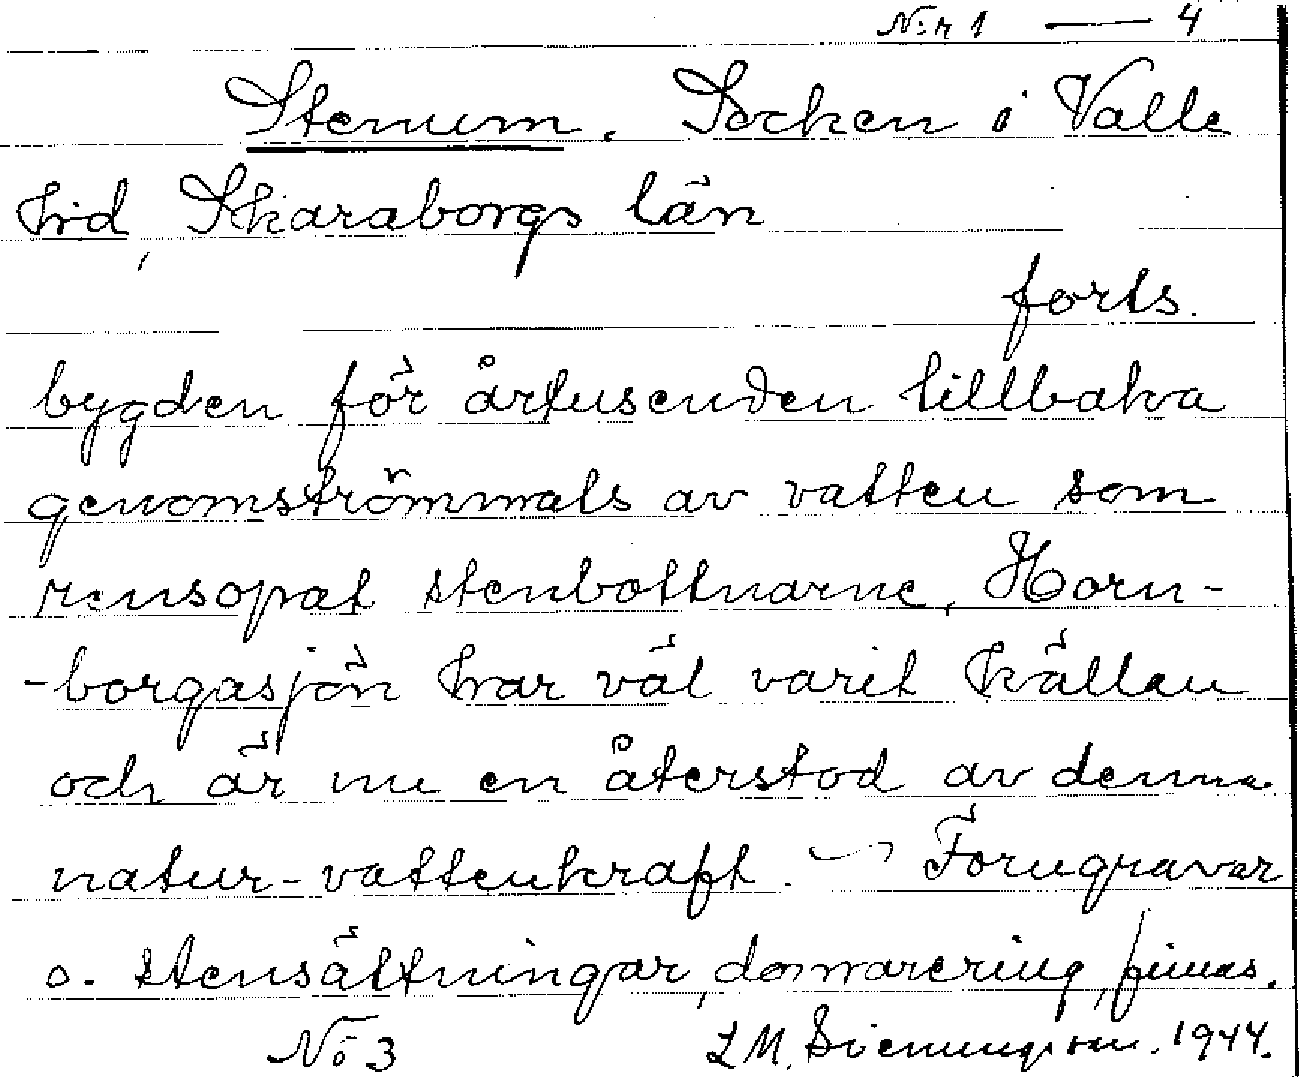 N:r 1 — 4
Stenum. Socken i Valle
hrd, Skaraborgs län
forts.
bygden för årtusenden tillbaka
genomströmmats av vatten som
rensopat stenbottnarne, Horn-
-borgasjön har väl varit källan
och är nu en återstod av denna
natur-vattenkraft. — Forngravar
o. stensättningar, domarering, finnas.
No 3 L M. 1944.